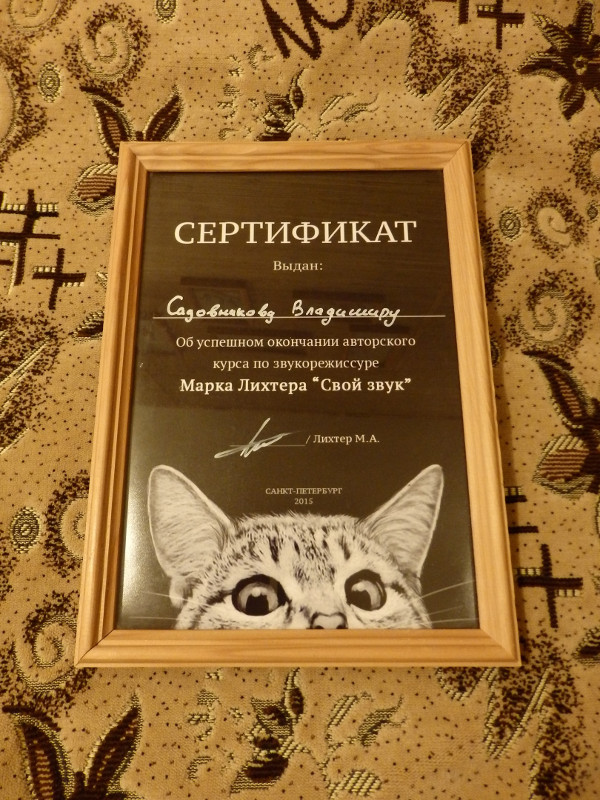 СЕРТИФИКАТ
Выдан:
Садовникову Владимиру
Об успешном окончании авторского
курса по звукорежиссуре
Марка Лихтера “Свой звук”
/ Лихтер М.А.
САНКТ-ПЕТЕРБУРГ
2015